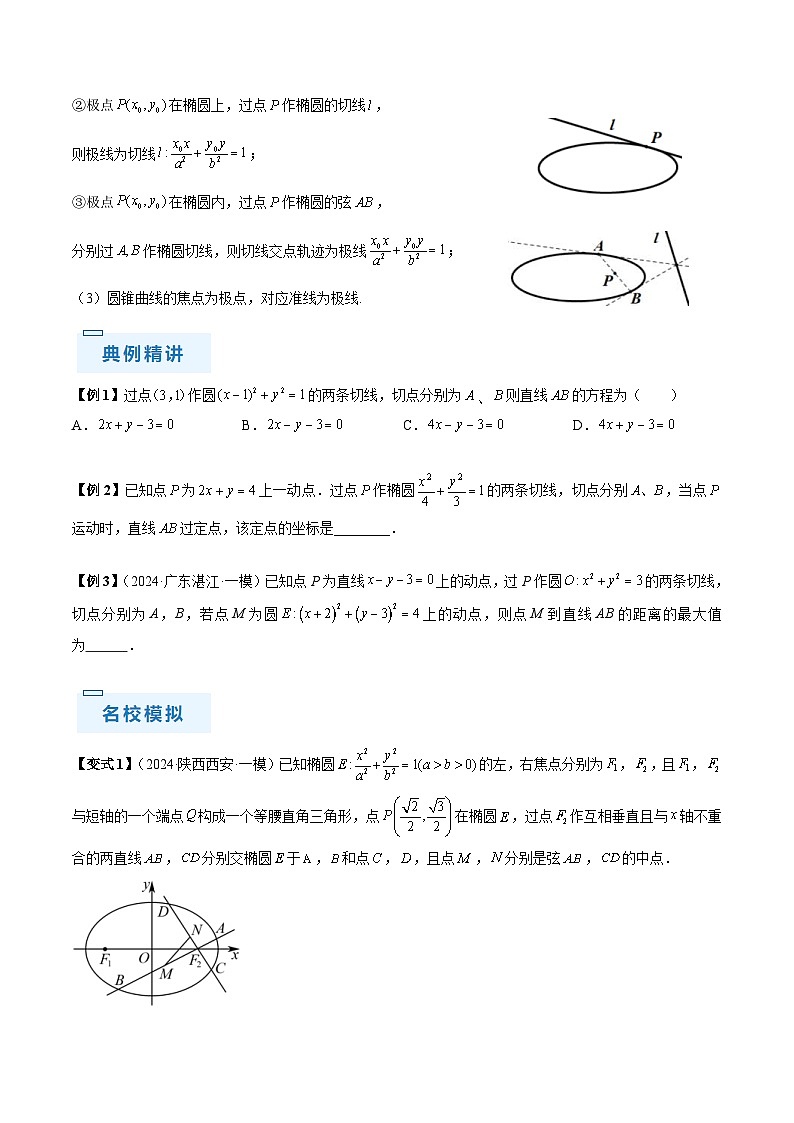 ②极点P(x₀, y₀)在椭圆上，过点P作椭圆的切线l，
则极线为切线l：x₀x/a²+y₀y/b²=1；
③极点P(x₀, y₀)在椭圆内，过点P作椭圆的弦AB，
分别过A,B作椭圆切线，则切线交点轨迹为极线x₀x/a²+y₀y/b²=1；
（3）圆锥曲线的焦点为极点，对应准线为极线.
l
P
A
l
P
B
典例精讲
【例1】过点(3,1)作圆(x−1)²+y²=1的两条切线，切点分别为A、B则直线AB的方程为（　　）
A．2x+y−3=0 B．2x−y−3=0 C．4x−y−3=0 D．4x+y−3=0
【例2】已知点P为2x+y=4上一动点．过点P作椭圆x²/4+y²/3=1的两条切线，切点分别A、B，当点P
运动时，直线AB过定点，该定点的坐标是________．
【例3】（2024·广东湛江·一模）已知点P为直线x−y−3=0上的动点，过P作圆O:x²+y²=3的两条切线，
切点分别为A，B，若点M为圆E:(x+2)²+(y−3)²=4上的动点，则点M到直线AB的距离的最大值
为______．
名校模拟
【变式1】（2024·陕西西安·一模）已知椭圆E:x²/a²+y²/b²=1(a>b>0)的左，右焦点分别为F₁，F₂,且F₁，F₂
与短轴的一个端点Q构成一个等腰直角三角形，点P(√2/2,√3/2)在椭圆E，过点F₂作互相垂直且与x轴不重
合的两直线AB，CD分别交椭圆E于A，B和点C，D，且点M，N分别是弦AB，CD的中点．
y
D
N
A
F₁
O
M
F₂
C
x
B